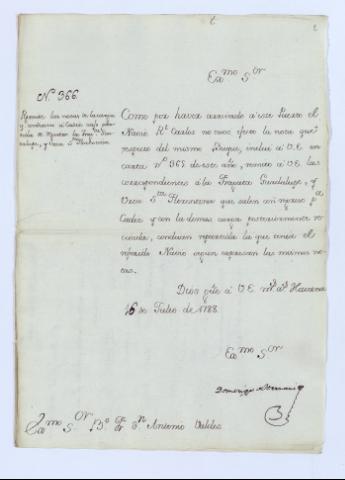 Exmo. Sor.
N.o 366.
Remite las notas de la carga
y conduce á Cadiz
de Guerra la Frag.ta Gua-
dalupe, y Urca S.ta Florentina
Como por haver arrivado á este Puerto el
Navio R.l Carlos no tuvo efecto la nota que
respecto del mismo Buque, inclui á V.E. en
carta n.o 365 de este año, remito á V.E. las
correspondientes á la Fragata Guadalupe, y
Urca S.ta Florentina que salen con registro p.a
Cadiz y con la demas carga posteriormente re-
civida, conducen repartida la que tenia el
referido Navio segun expresan las mismas no-
tas.
Dios gūe á V.E. m.s a.s Havana
16 de Julio de 1788.
Exmo. Sor.
Domingo
Exmo. Sor. B.o Fr. D.n Antonio Valdes